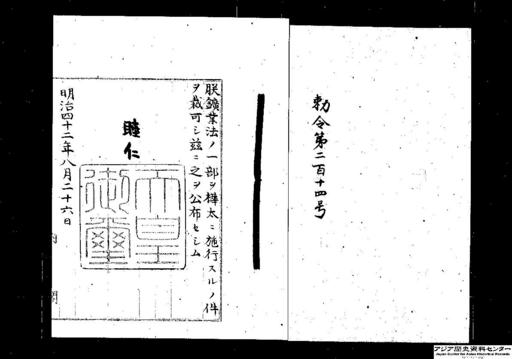 勅令第二百十四号
朕鑛業法ノ一部ヲ樺太ニ施行スルノ件
ヲ裁可シ茲ニ之ヲ公布セシム
睦仁
天皇
御璽
明治四十二年八月二十六日
内閣
アジア歴史資料センター
Japan Center for Asian Historical Records